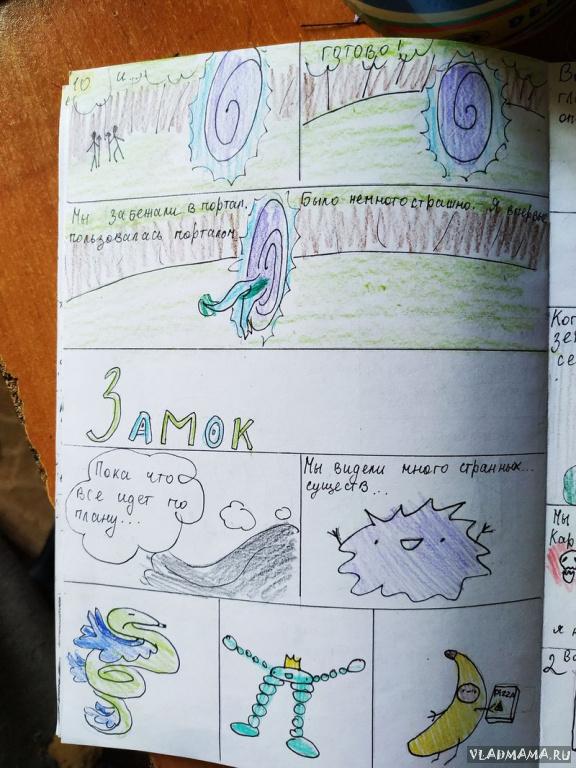 10
и...
ГОТОВО!
Мы забежали в портал.
пользовалась порталом
Было немного страшно. Я впервые
ЗАМОК
Пока что
все идет по
плану...
Мы видели много странных...
существ...
PIZZA
Мы
2
VLADMAMA.RU